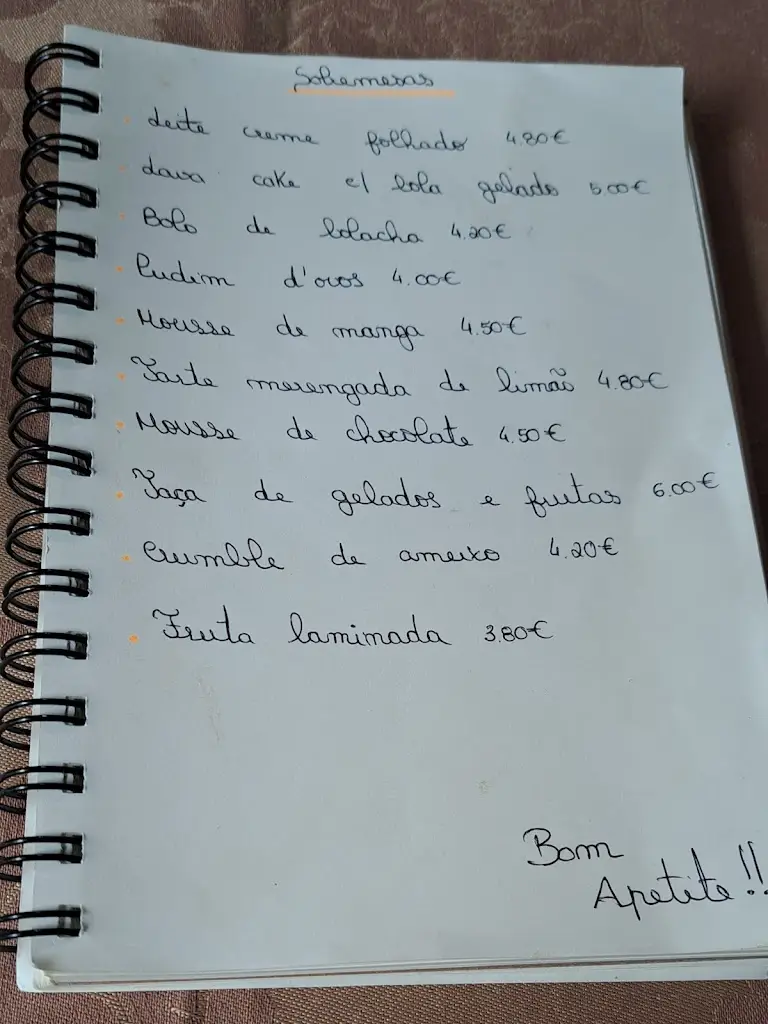 Sobremesas
Leite creme folhado 4.80€
Lava cake c/ bola gelado 5.00€
Bolo de bolacha 4.20€
Pudim d'ovos 4.00€
Mousse de manga 4.50€
Tarte merengada de limão 4.80€
Mousse de chocolate 4.50€
Taça de gelados e frutas 6.00€
Crumble de ameixa 4.20€
Fruta laminada 3.80€
Bom
Apetite!!